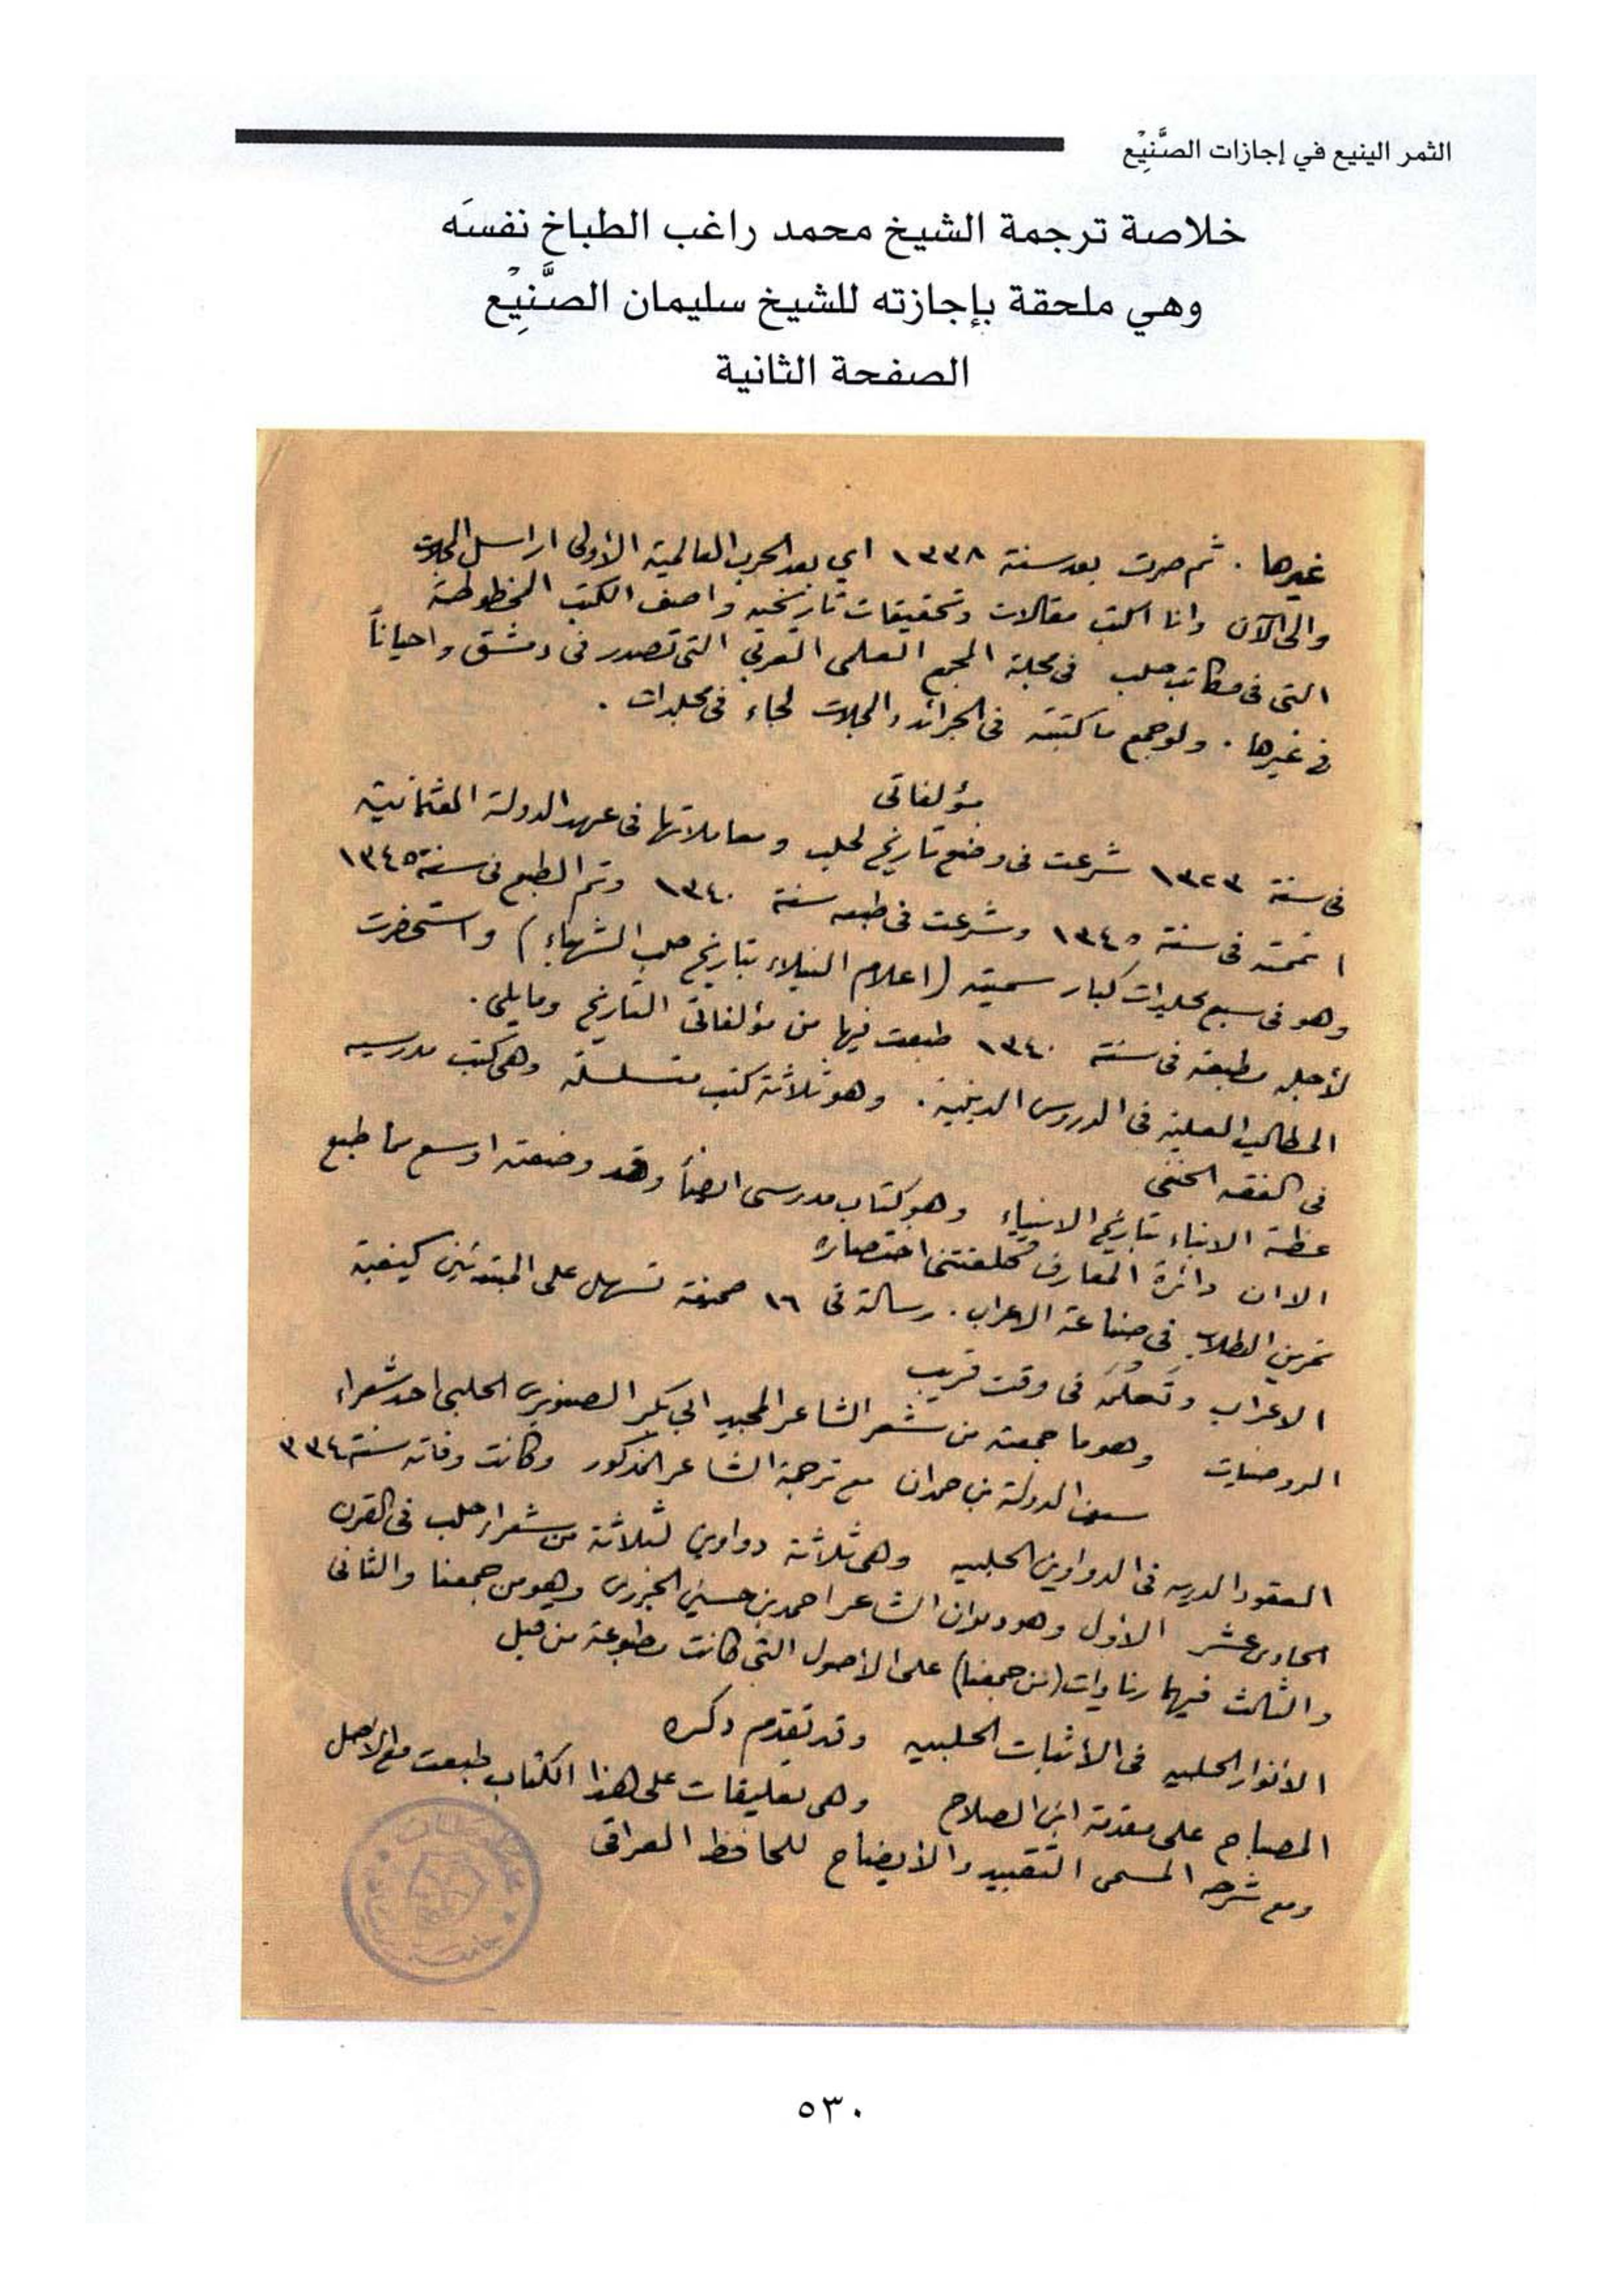 الثمر الينيع في إجازات الصَّنِيْع
خلاصة ترجمة الشيخ محمد راغب الطباخ نفسَه
وهي ملحقة بإجازته للشيخ سليمان الصَّنِيْع
الصفحة الثانية
غيرها . ثم صرت بعد سنة ١٣٣٨ اي بعد الحرب العالمية الأولى اراسل المجلات
والى الآن وانا اكتب مقالات وتحقيقات تاريخيه واصف الكتب المخطوطة
التى فى مكاتب حلب فى مجلة المجمع العلمى العربي التى تصدر فى دمشق واحياناً
فى غيرها . ولو جمع ما كتبته فى الجرائد والمجلات لجاء فى مجلدات .
مؤلفاتى
فى سنة ١٣٢٣ شرعت فى وضع تاريخ لحلب ومعاملاتها فى عهد الدولة العثمانية
اتممته فى سنة ١٣٤٥ وشرعت فى طبعه سنة ١٣٤٠ وتم الطبع فى سنة ١٣٤٥
وهو فى سبع مجلدات كبار سميته (اعلام النبلاء بتاريخ حلب الشهباء) واستحضرت
لأجله مطبعة فى سنة ١٣٤٠ طبعت فيها من مؤلفاتى التاريخ ومايلي .
المطالب العلية فى الدروس الدينية . وهو ثلاثة كتب متسلسلة وهى كتب مدرسيه
فى الفقه الحنفى
عظة الابناء بتاريخ الانبياء وهو كتاب مدرسى ايضاً وقد وضعته اوسع مما طبع
الا ان دائرة المعارف كلفتنى اختصاره
تمرين الطلاب فى صناعة الاعراب . رسالة فى ١٦ صحيفة تسهل على المبتدئين كيفية
الاعراب وتعلمه فى وقت قريب
الروضيات وهو ما جمعته من شعر الشاعر المجيد ابي بكر الصنوبري الحلبي احد شعراء
سيف الدولة بن حمدان مع ترجمة الشاعر المذكور وكانت وفاته سنة ٣٣٤
العقود الدريه فى الدواوين الحلبيه وهى ثلاثة دواوين لثلاثة من شعراء حلب فى القرن
الحادى عشر الأول وهو ديوان الشاعر احمد بن حسين الجزرى وهو من جمعنا والثانى
والثالث فيهما زيادات (من جمعنا) على الأصول التى كانت مطبوعة من قبل
الأنوار الجلية فى الأثبات الحلبيه وقد تقدم ذكره
المصباح على مقدمة ابن الصلاح وهى تعليقات على هذا الكتاب طبعت مع الأصل
ومع شرحه المسمى التقييد والأيضاح للحافظ العراقى
٥٣٠